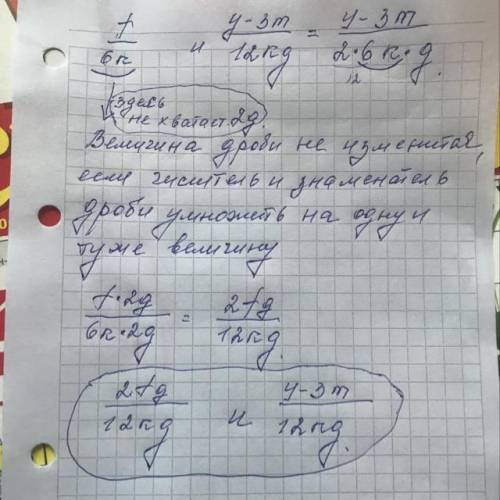 f/6к и у-3m/12кд = у-3m/2·6к·д
12
здесь
не хватает 2д.
Величина дроби не изменится,
если числитель и знаменатель
дроби умножить на одну и
туже величину
f·2д/6к·2д = 2fд/12кд.
2fд/12кд и у-3m/12кд.